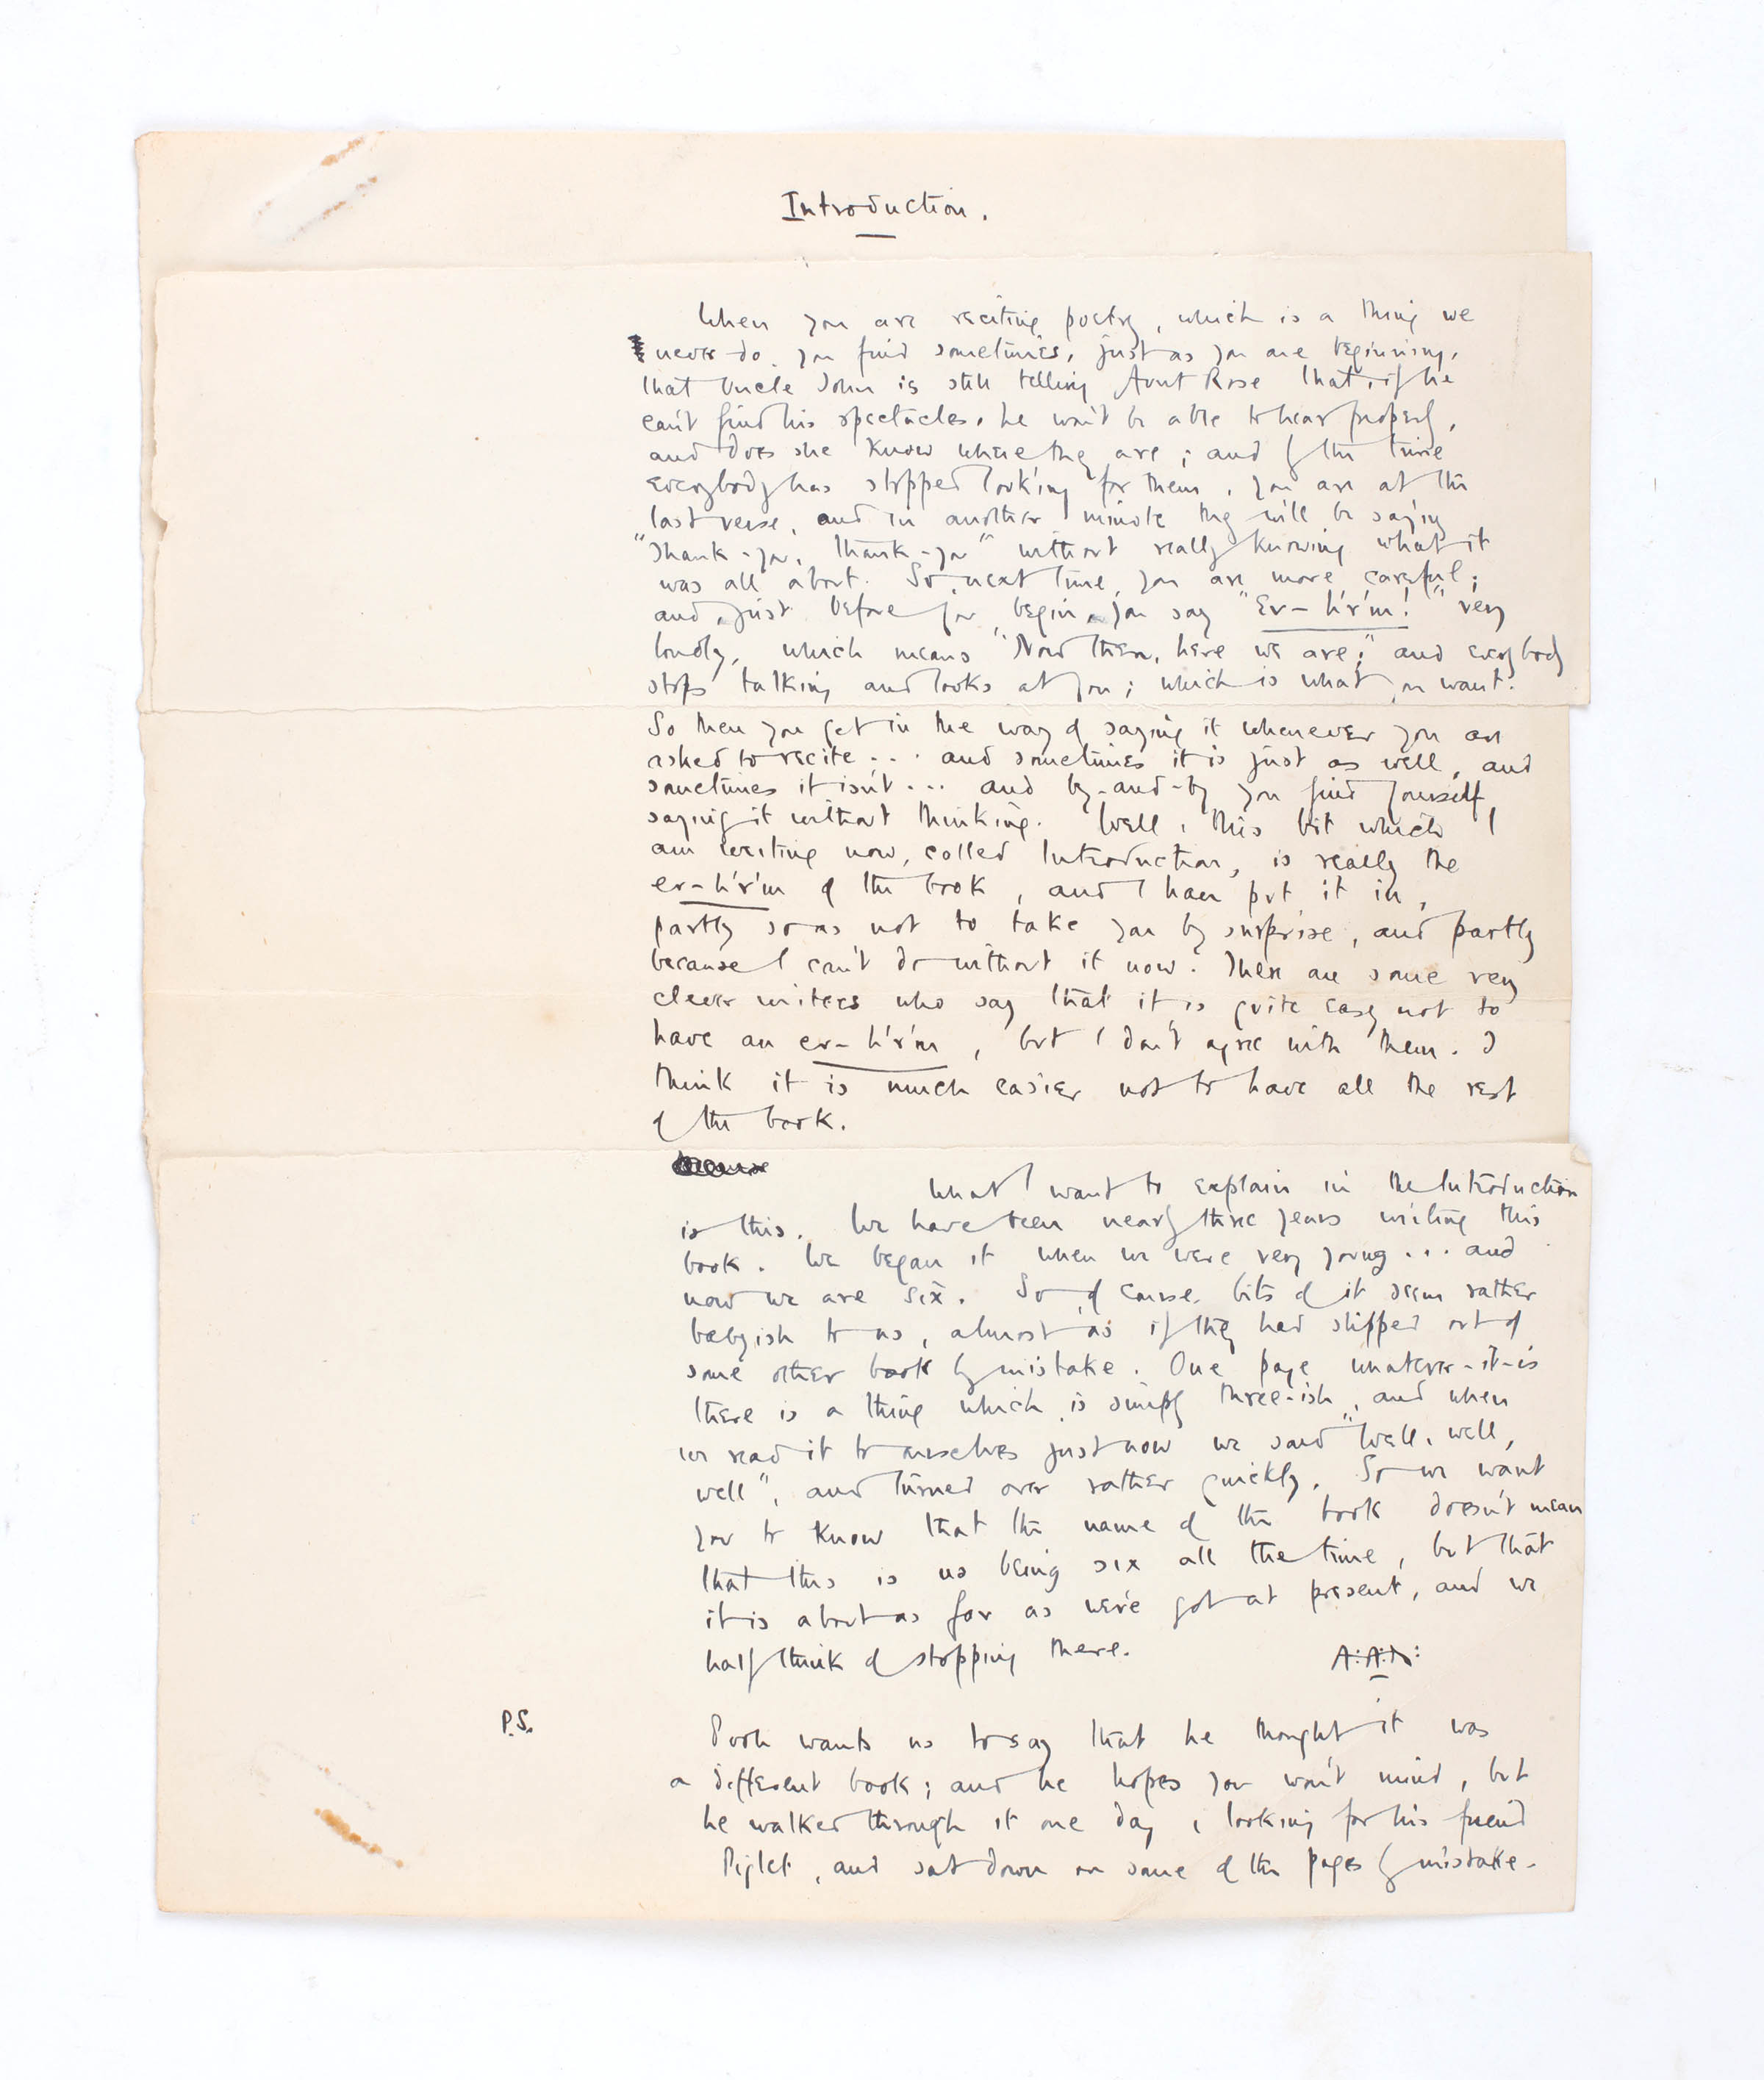 Introduction.
When you are reciting poetry, which is a thing we
never do, you find sometimes, just as you are beginning,
that Uncle John is still telling Aunt Rose that, if he
can't find his spectacles, he won't be able to hear properly,
and does she know where they are; and by the time
everybody has stopped looking for them, you are at the
last verse, and in another minute they will be saying
"Thank-you, thank-you" without really knowing what it
was all about. So, next time, you are more careful;
and, just before you begin, you say "Er-h'r'm!" very
loudly, which means "Now then, here we are;" and everybody
stops talking and looks at you; which is what you want.
So then you get in the way of saying it whenever you are
asked to recite... and sometimes it is just as well, and
sometimes it isn't... and by-and-by you find yourself
saying it without thinking. Well, this bit which I
am writing now, called Introduction, is really the
er-h'r'm of the book, and I have put it in,
partly so as not to take you by surprise, and partly
because I can't do without it now. There are some very
clever writers who say that it is quite easy not to
have an er-h'r'm, but I don't agree with them. I
think it is much easier not to have all the rest
of the book.
What I want to explain in the Introduction
is this. We have been nearly three years writing this
book. We began it when we were very young... and
now we are six. So, of course, bits of it seem rather
babyish to us, almost as if they had slipped out of
some other book by mistake. One page whatever-it-is
there is a thing which is simply three-ish, and when
we read it to ourselves just now we said "Well, well,
well", and turned over rather quickly. So we want
you to know that the name of the book doesn't mean
that this is us being six all the time, but that
it is about as far as we've got at present, and we
half think of stopping there. A.A.M.
P.S. Pooh wants us to say that he thought it was
a different book; and he hopes you won't mind, but
he walked through it one day, looking for his friend
Piglet, and sat down on some of the pages by mistake.